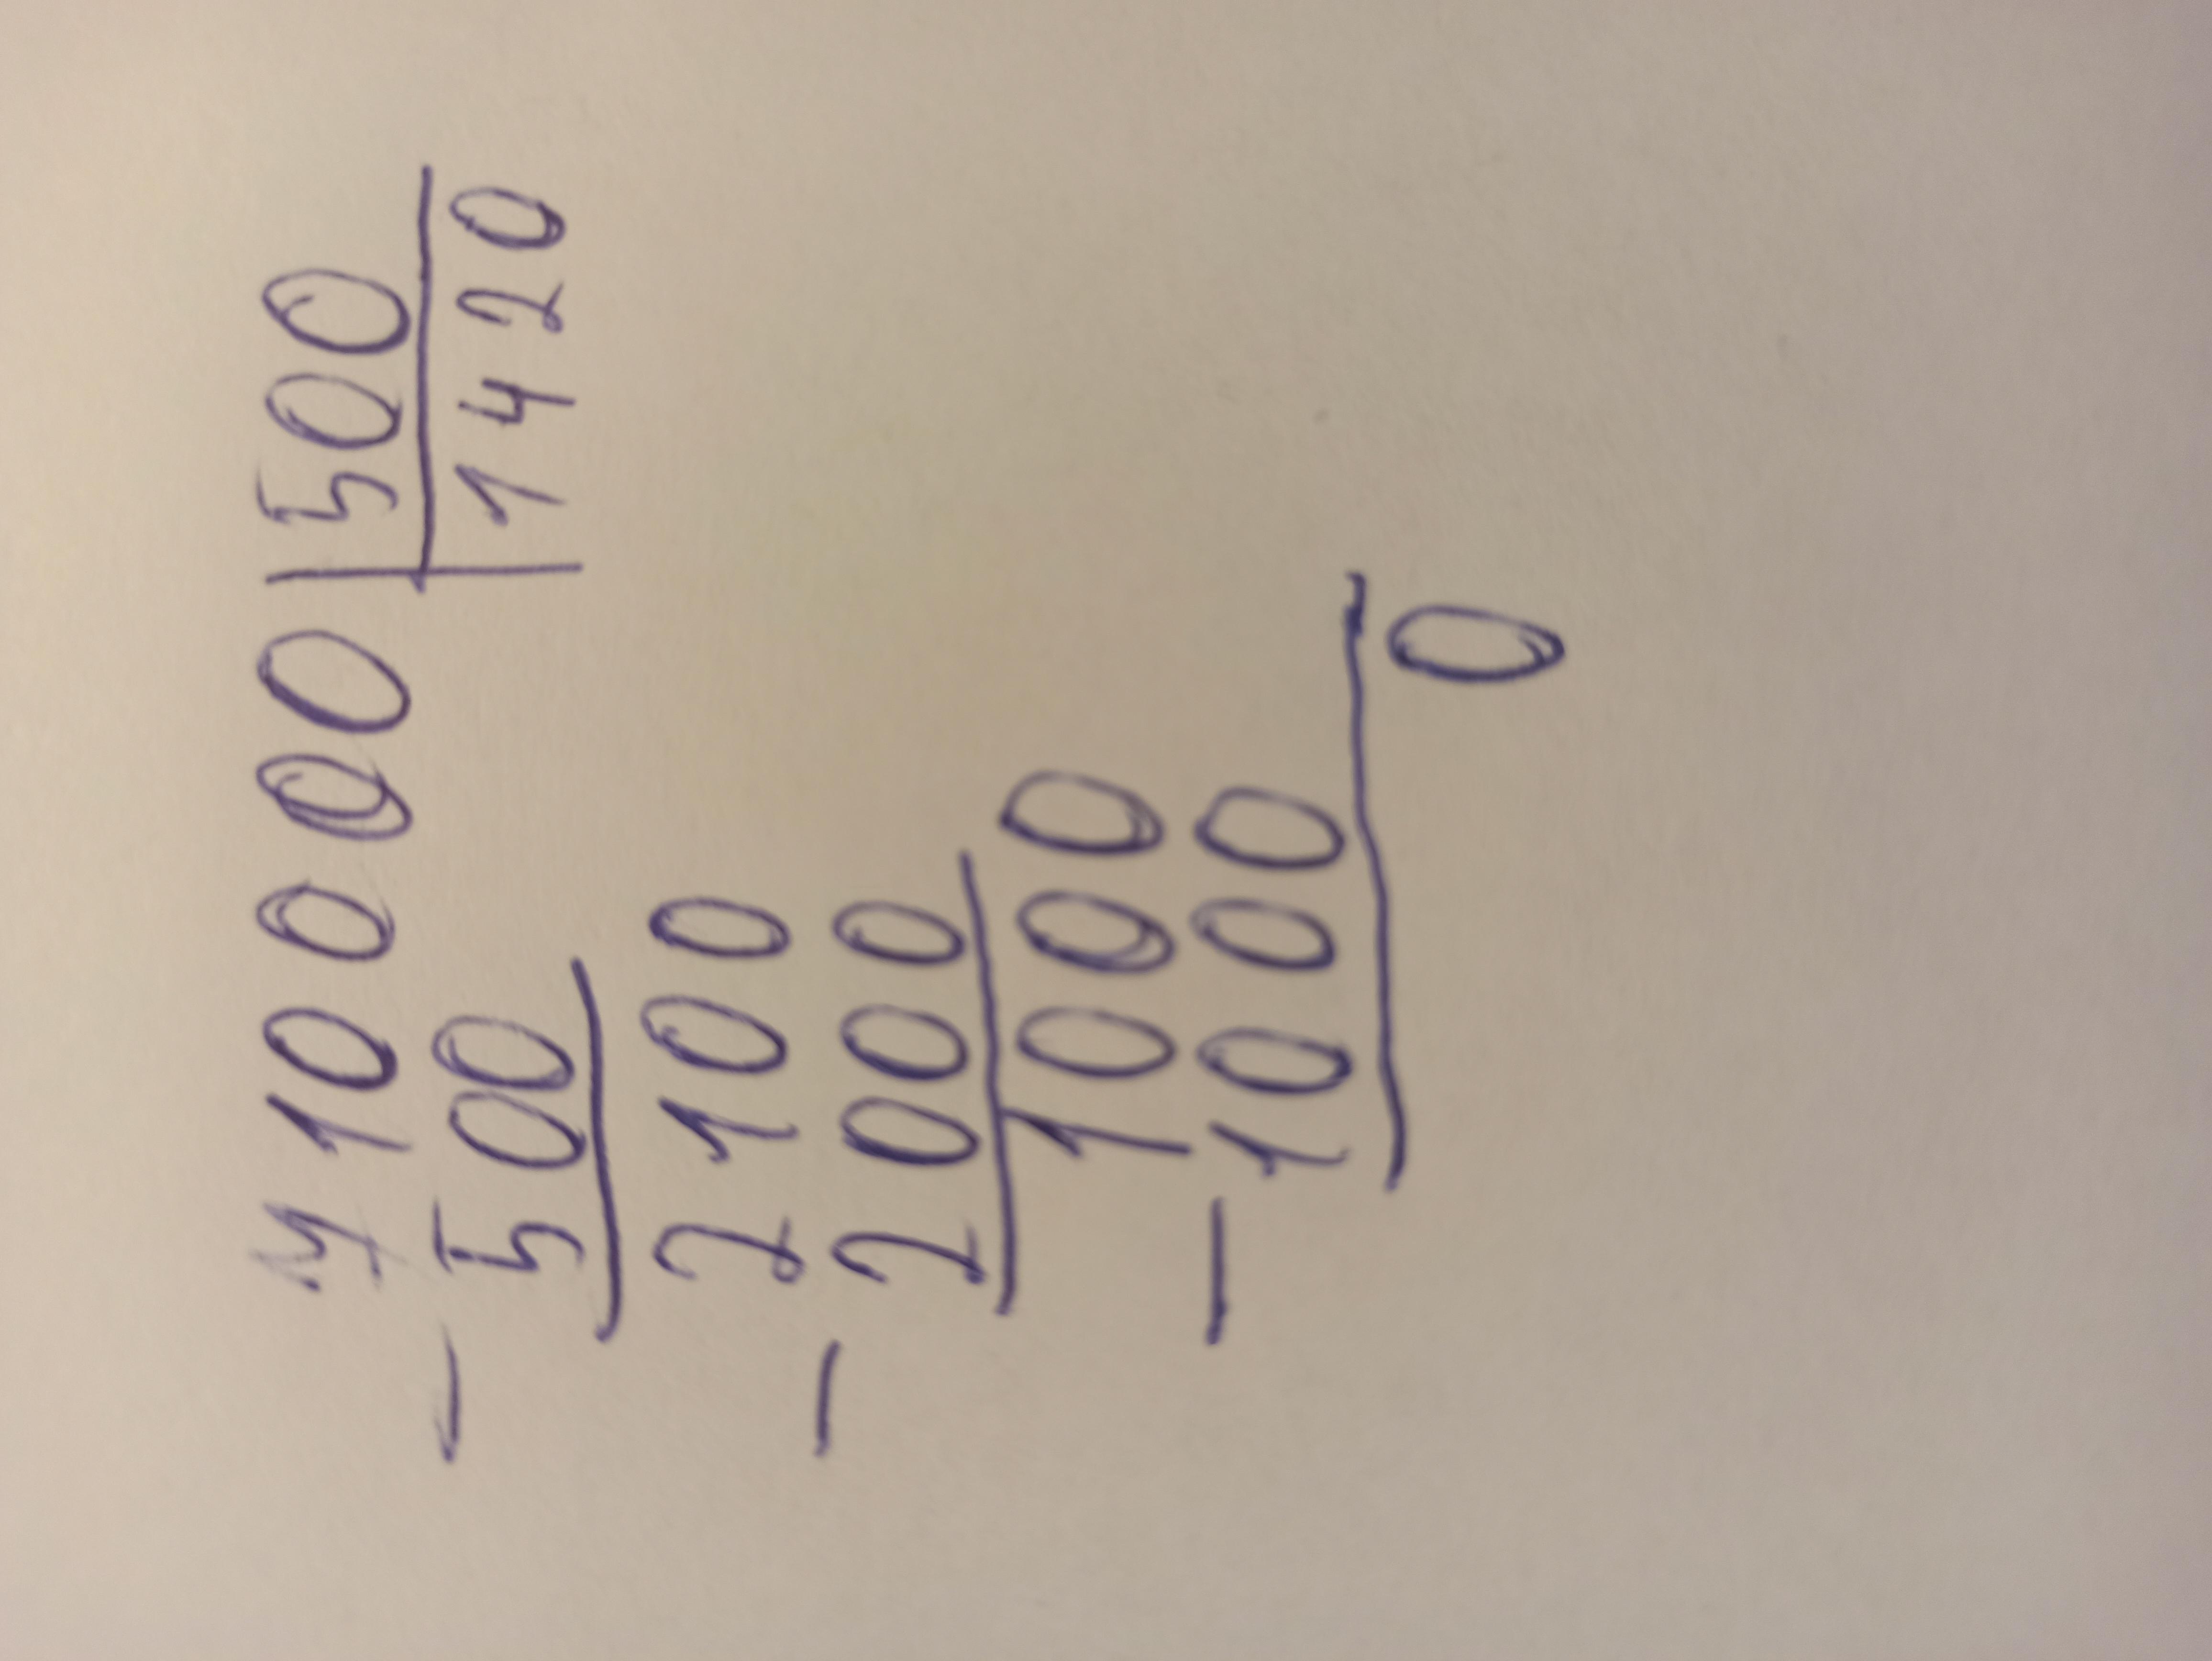 710000 | 500
- 500 | 1420
2100
- 2000
1000
- 1000
0